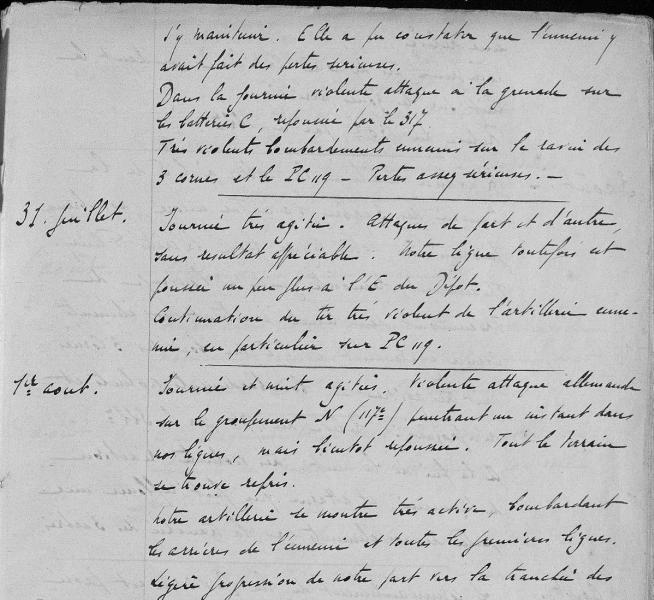 s'y maintenir. Elle a pu constater que l'ennemi y
avait fait des pertes sérieuses.
Dans la journée violente attaque à la grenade sur
les batteries C, repoussée par le 317
Très violents bombardements ennemis sur le ravin des
3 cornes et le PC 119 – Pertes assez sérieuses. –
31 Juillet. Journée très agitée. Attaques de part et d'autre,
sans resultat appréciable. Notre ligne toutefois est
poussée un peu plus à l'E du Dépot.
Continuation du tir très violent de l'artillerie enne-
mie, en particulier sur PC 119.
1er aout. Journée et nuit agitées. Violente attaque allemande
sur le groupement N (117e) penetrant un instant dans
nos lignes, mais bientot repoussée. Tout le terrain
se trouve repris.
Notre artillerie se montre très active, bombardant
les arrières de l'ennemi et toutes les premières lignes.
Légère progression de notre part vers la tranchée des